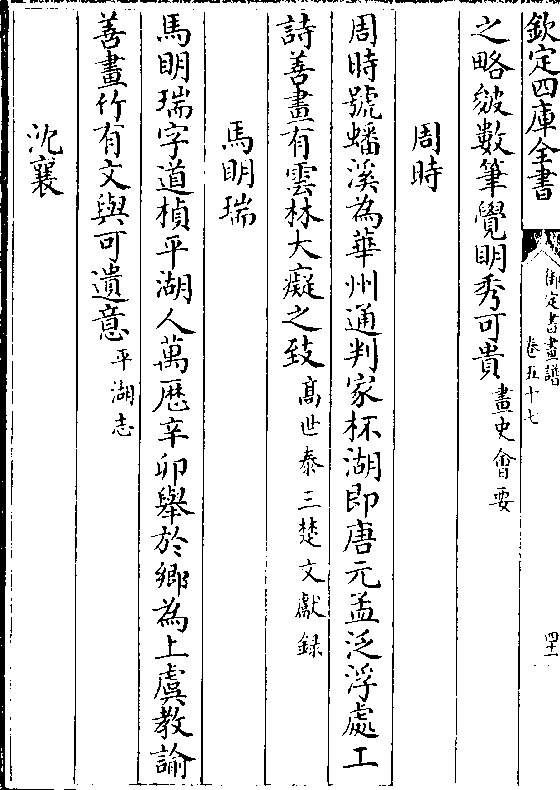 欽定四庫全書
御定書畫譜
卷五十七
四十一
之略皴數筆覺明秀可貴畫史會要
周時
周時號蟠溪為華州通判家杯湖即唐元孟泛浮處工
詩善畫有雲林大癡之致髙世泰三楚文獻録
馬明瑞
馬明瑞字道楨平湖人萬厯辛卯舉於鄉為上虞教諭
善畫竹有文與可遺意平湖志
沈襄